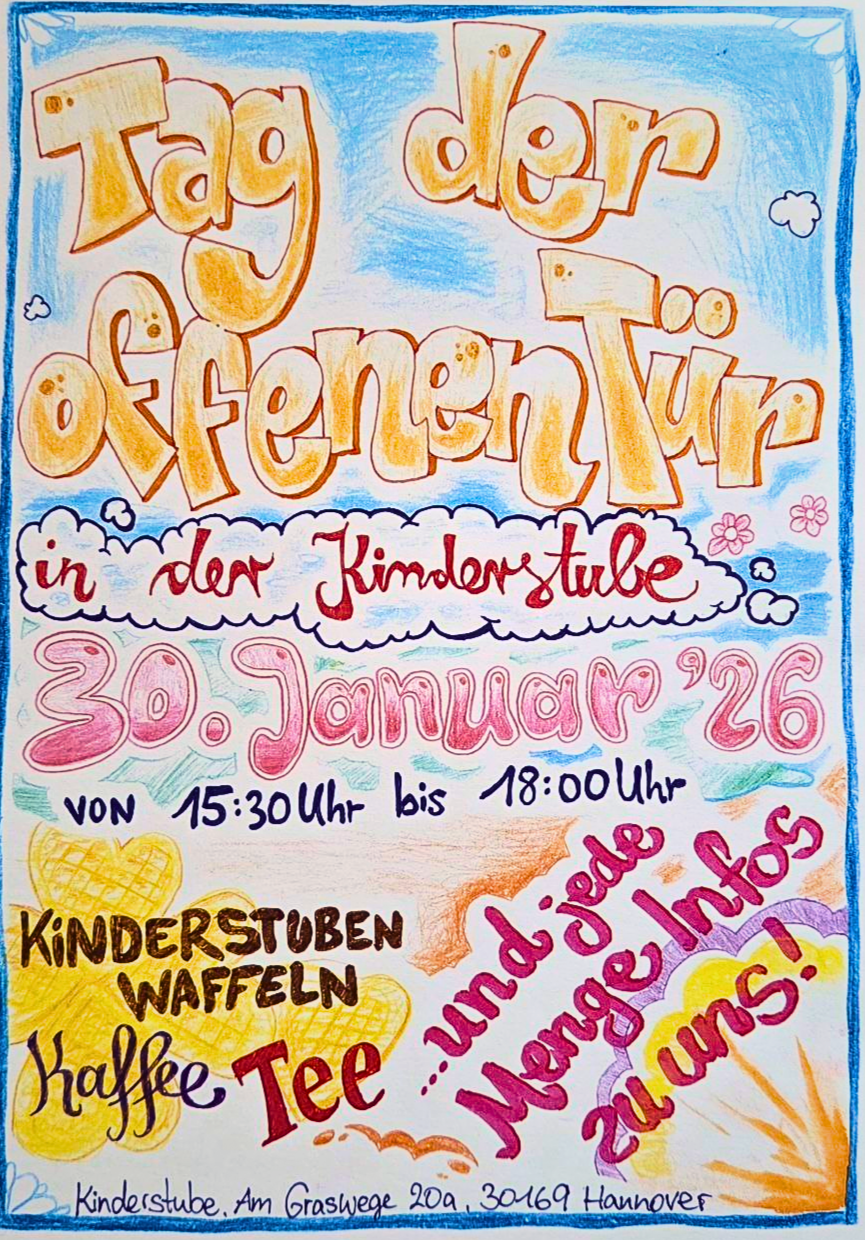 Tag der
offenen Tür
in der Kinderstube
30. Januar '26
von 15:30 Uhr bis 18:00 Uhr
KiNDERSTUBEN
WAFFELN
Kaffee Tee
...und jede
Menge Infos
zu uns!
Kinderstube, Am Graswege 20a, 30169 Hannover